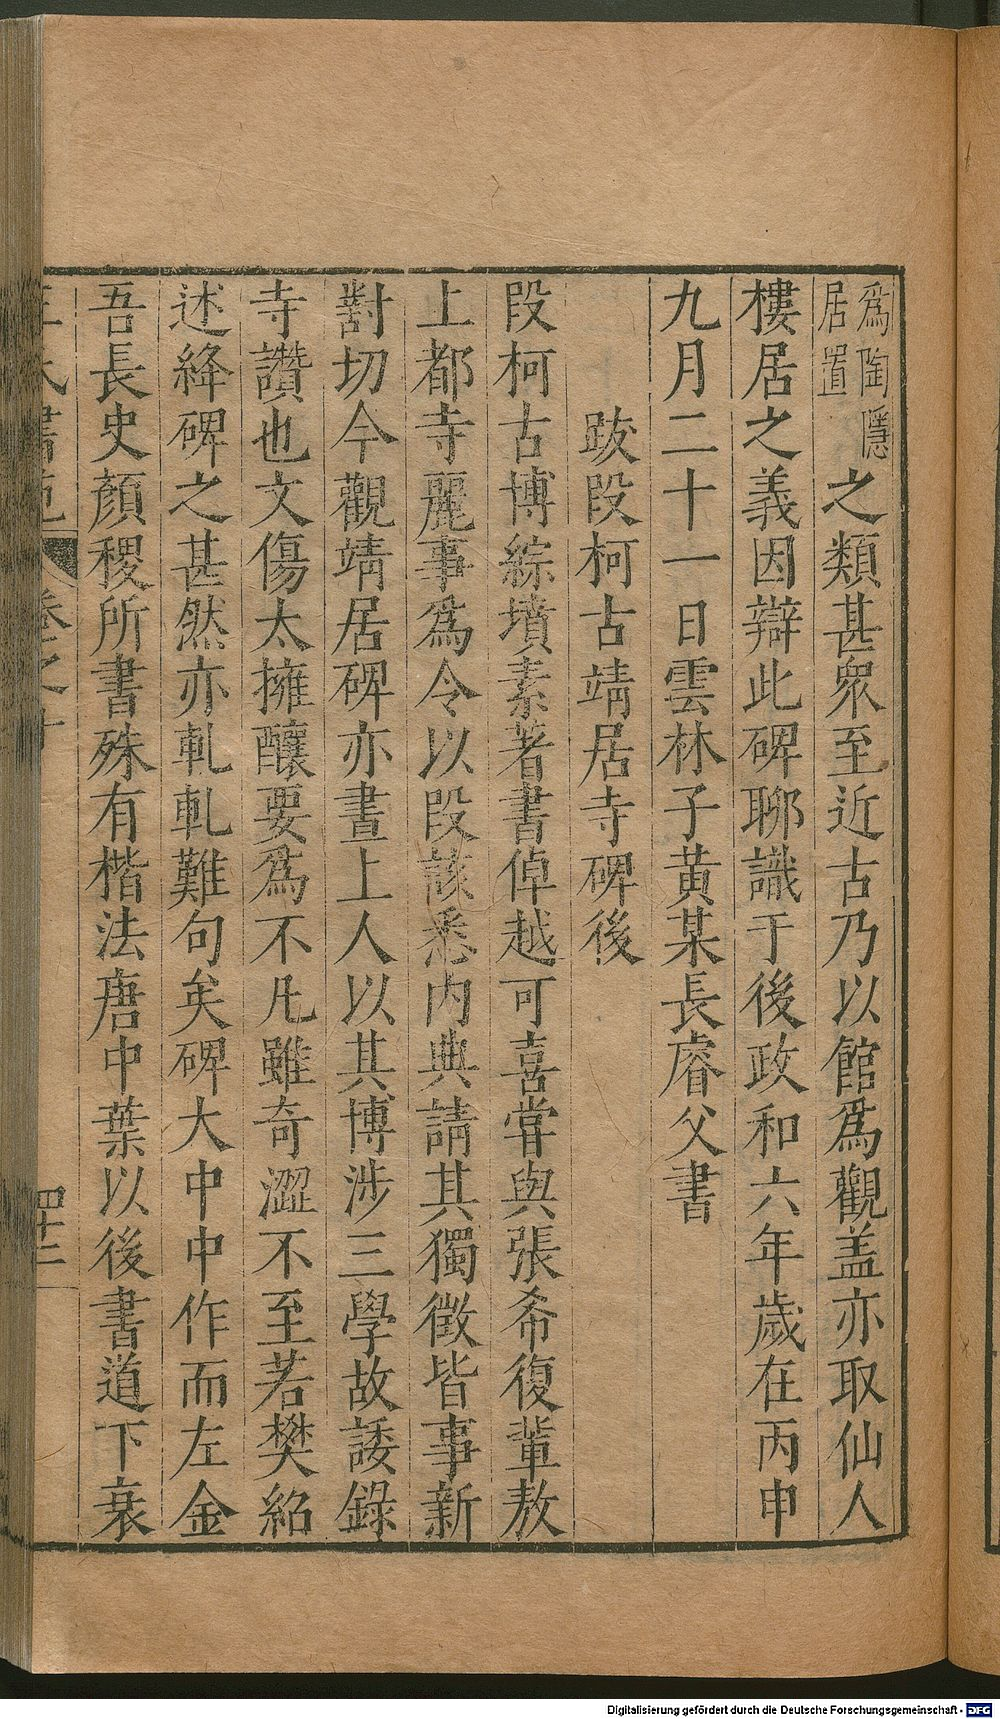 爲陶隱居置之類甚衆至近古乃以館爲觀盖亦取仙人
樓居之義因辯此碑聊識于後政和六年歲在丙申
九月二十一日雲林子黃某長睿父書
跋段柯古靖居寺碑後
段柯古博綜墳素著書倬越可喜甞與張希復輩敖
上都寺麗事爲令以段該悉内典請其獨徵皆事新
對切今觀靖居碑亦晝上人以其博涉三學故諉錄
寺讚也文傷太擁釀要爲不凡雖奇澀不至若樊紹
述絳碑之甚然亦軋軋難句矣碑大中中作而左金
吾長史顏稷所書殊有楷法唐中葉以後書道下衰
卷之十
四十二
Digitalisierung gefördert durch die Deutsche Forschungsgemeinschaft - DFG